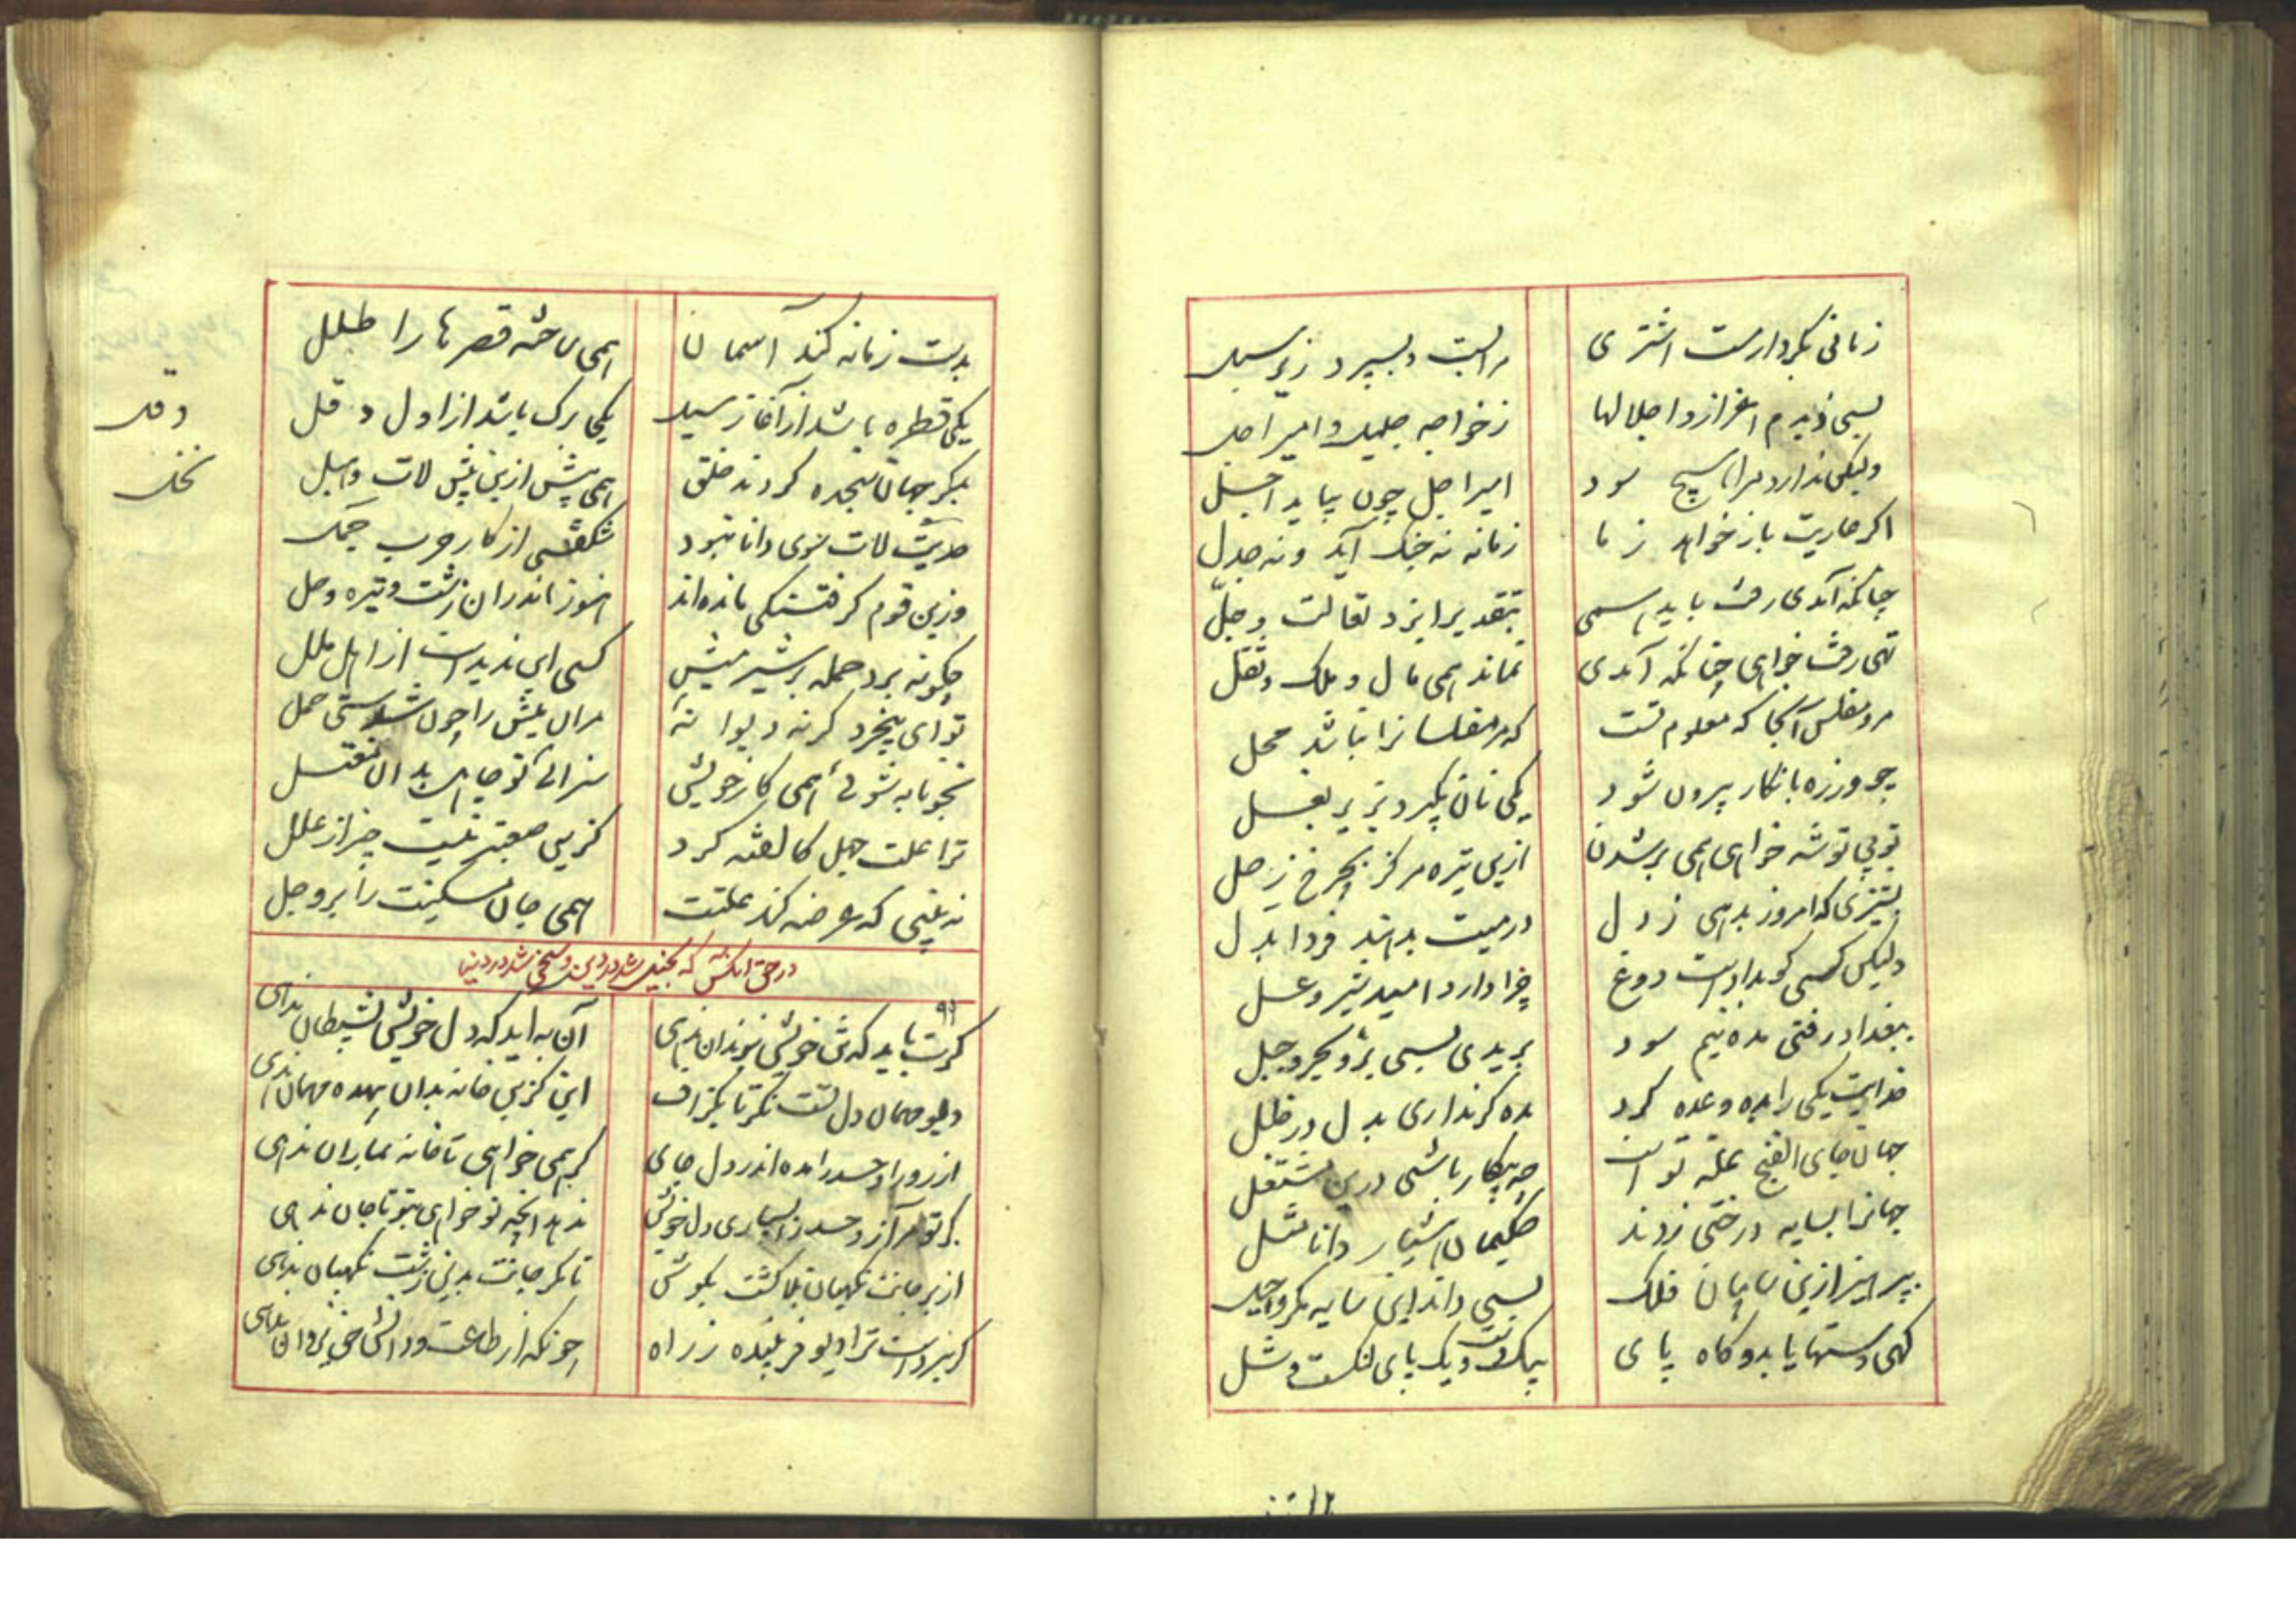 زمانی بکردارست اشتری
مرا پست و بسپرد زیر سبل
بسی دیدم اعزاز و اجلالها
ز خواجه جلیل و امیر اجل
ولیکن ندارد مرا هیچ سود
امیر اجل چون بیاید اجل
اگر عاریت باز خواهد ز ما
زمانه نه جنک آید و نه جدل
چنانکه آمدی رفت باید همی
بتقدیر ایزد تعالت وجلّ
تهی رفت خواهی چنانکه آمدی
نماند همی مال و ملک و ثقل
مرو مفلس آنجا که معلوم تست
که مر مفلسانرا نباشد محل
چو ورزه بانکار بیرون شود
یکی نان بگیرد بزیر بغل
تو بی توشه خواهی همی برشدن
ازین تیره مرکز بچرخ زحل
بتیزی که امروز بدهی ز دل
درمیت بدهند فردا بدل
ولیکن کسی کو بدادست دوغ
چرا دارد امید شیر و عسل
ببغداد رفتی بده نیم سود
بریدی بسی بر و بحر و جبل
خدایت یکی را بده وعده کرد
بده کر نداری بدل در خلل
جهان جای الفنج غله تو است
چه بیکار باشی درین مشتغل
جهانرا بسایه درختی زدند
حکیمان هشیار دانا مثل
بپرهیز ازین سایبان فلک
بسی داند این سایه مکر و حیل
کهی دستها یابد و کاه پای
بیک دست و یک پای لنکست و شل
بدست زمانه کند آسمان
همی ساخته قصرها را طلل
یکی قطره باشد از آغاز سیل
یکی برک باشد از اول دقل
بکر جهان سجده کردند خلق
همی پیش ازین پیش لات و هبل
حدیث لات سوی دانا نبود
شکفتی از کار حرب جمل
وزین قوم کز فتنکی مانده‌اند
هنوز اندران زشت و تیره وحل
چکونه برد حمله بر شیر میش
کسی این ندیدست از اهل ملل
تو ای بیخرد کر نه دیوانه
مران میش را چون شدستی حمل
نجوئی همی کار خویش
سزای تو جاهل بدان مغتسل
ترا علت جهل کالفته کرد
کزین صعبتر نیست چیز از علل
نه بینی که عرضه کند علتت
همی جان مسکینت را بر وجل
دقل
نخل
در حق آنکس که بخیل شد در دین و سخی شد در دنیا
۹۹
کرت باید که تن خویش بزندان ندهی
آن به آید که دل خویش بشیطان ندهی
دیو مهمان دل تست نکر تا بکزاف
این کزین خانه بدان بیهده مهمان ندهی
آز و را و حسد را مده اندر دل جای
کر همی خواهی تا خانه بماران ندهی
کر تو مر آز و حسد را بسپاری دل خویش
ندهد آنچه تو خواهی بتو تا جان ندهی
از بر جانت نکهبان بلا کشت بکوش
تا مکر جانت بدین زشت نکهبان ندهی
کر نبردست ترا دیو فریبنده ز راه
چونکه از طاعت و دانش حق یزدان ندهی